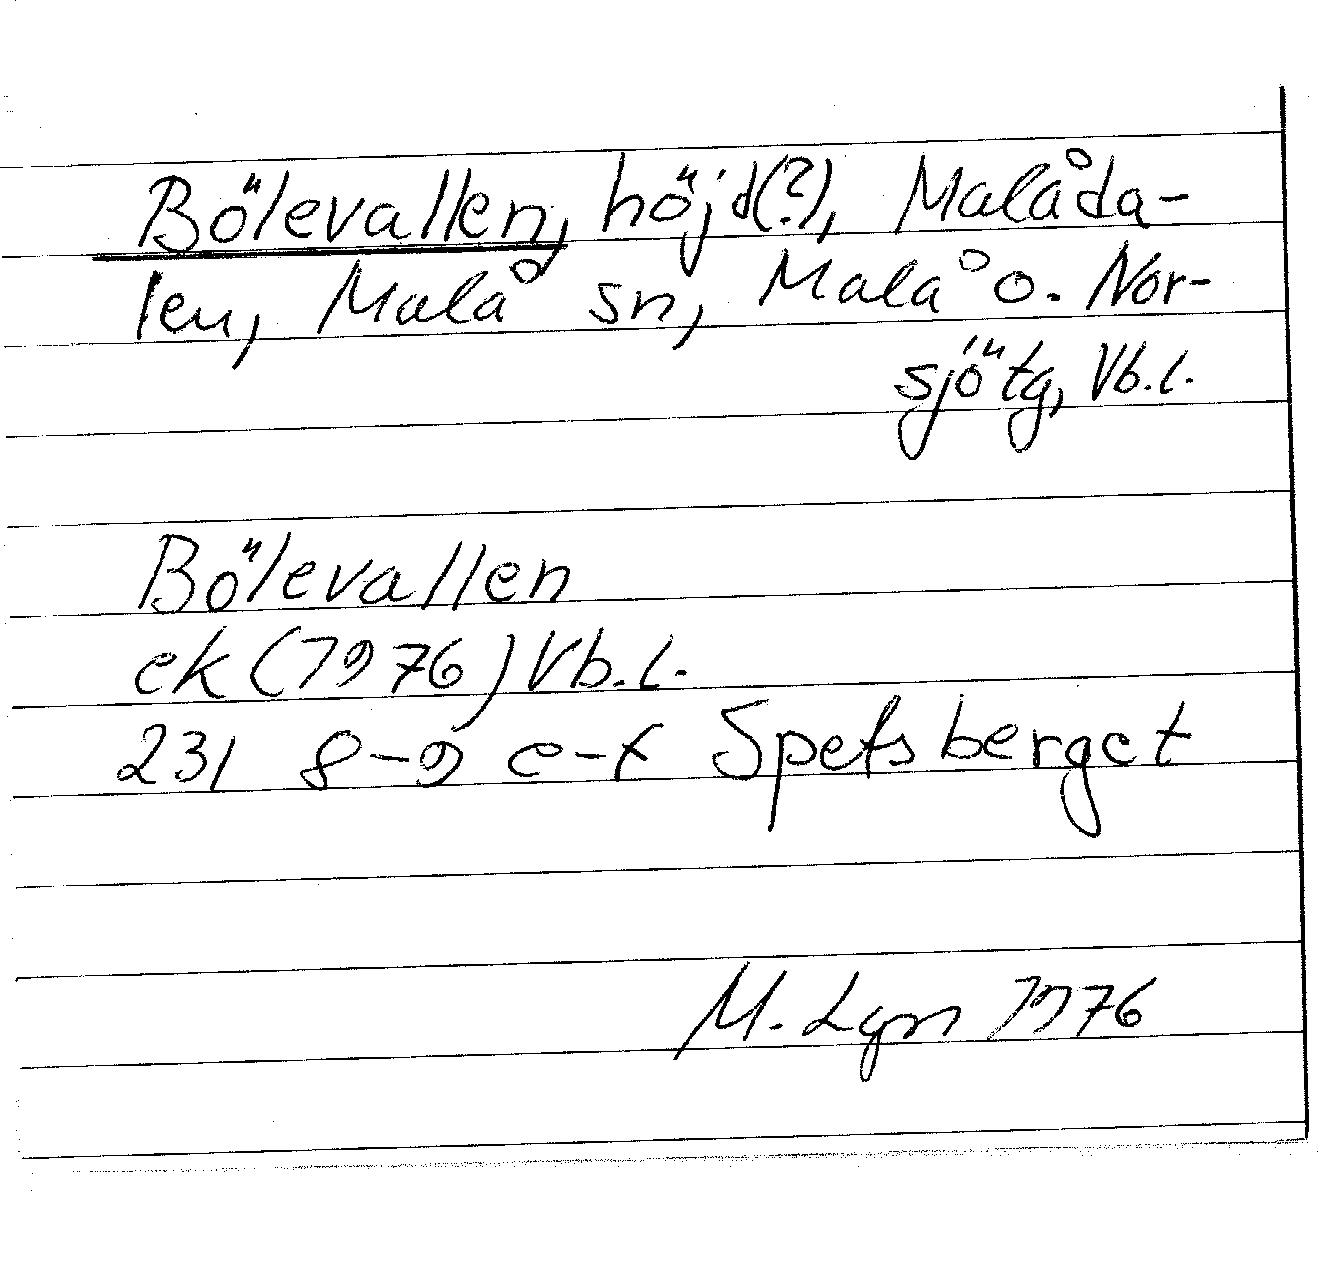 Bölevallen, höjd(?), Malåda-
len, Malå sn, Malå o. Nor-
sjö tg, Vb.l.
Bölevallen
ek (1976) Vb.l.
23I 8-9 e-f Spetsberget
M. Lgn 1976